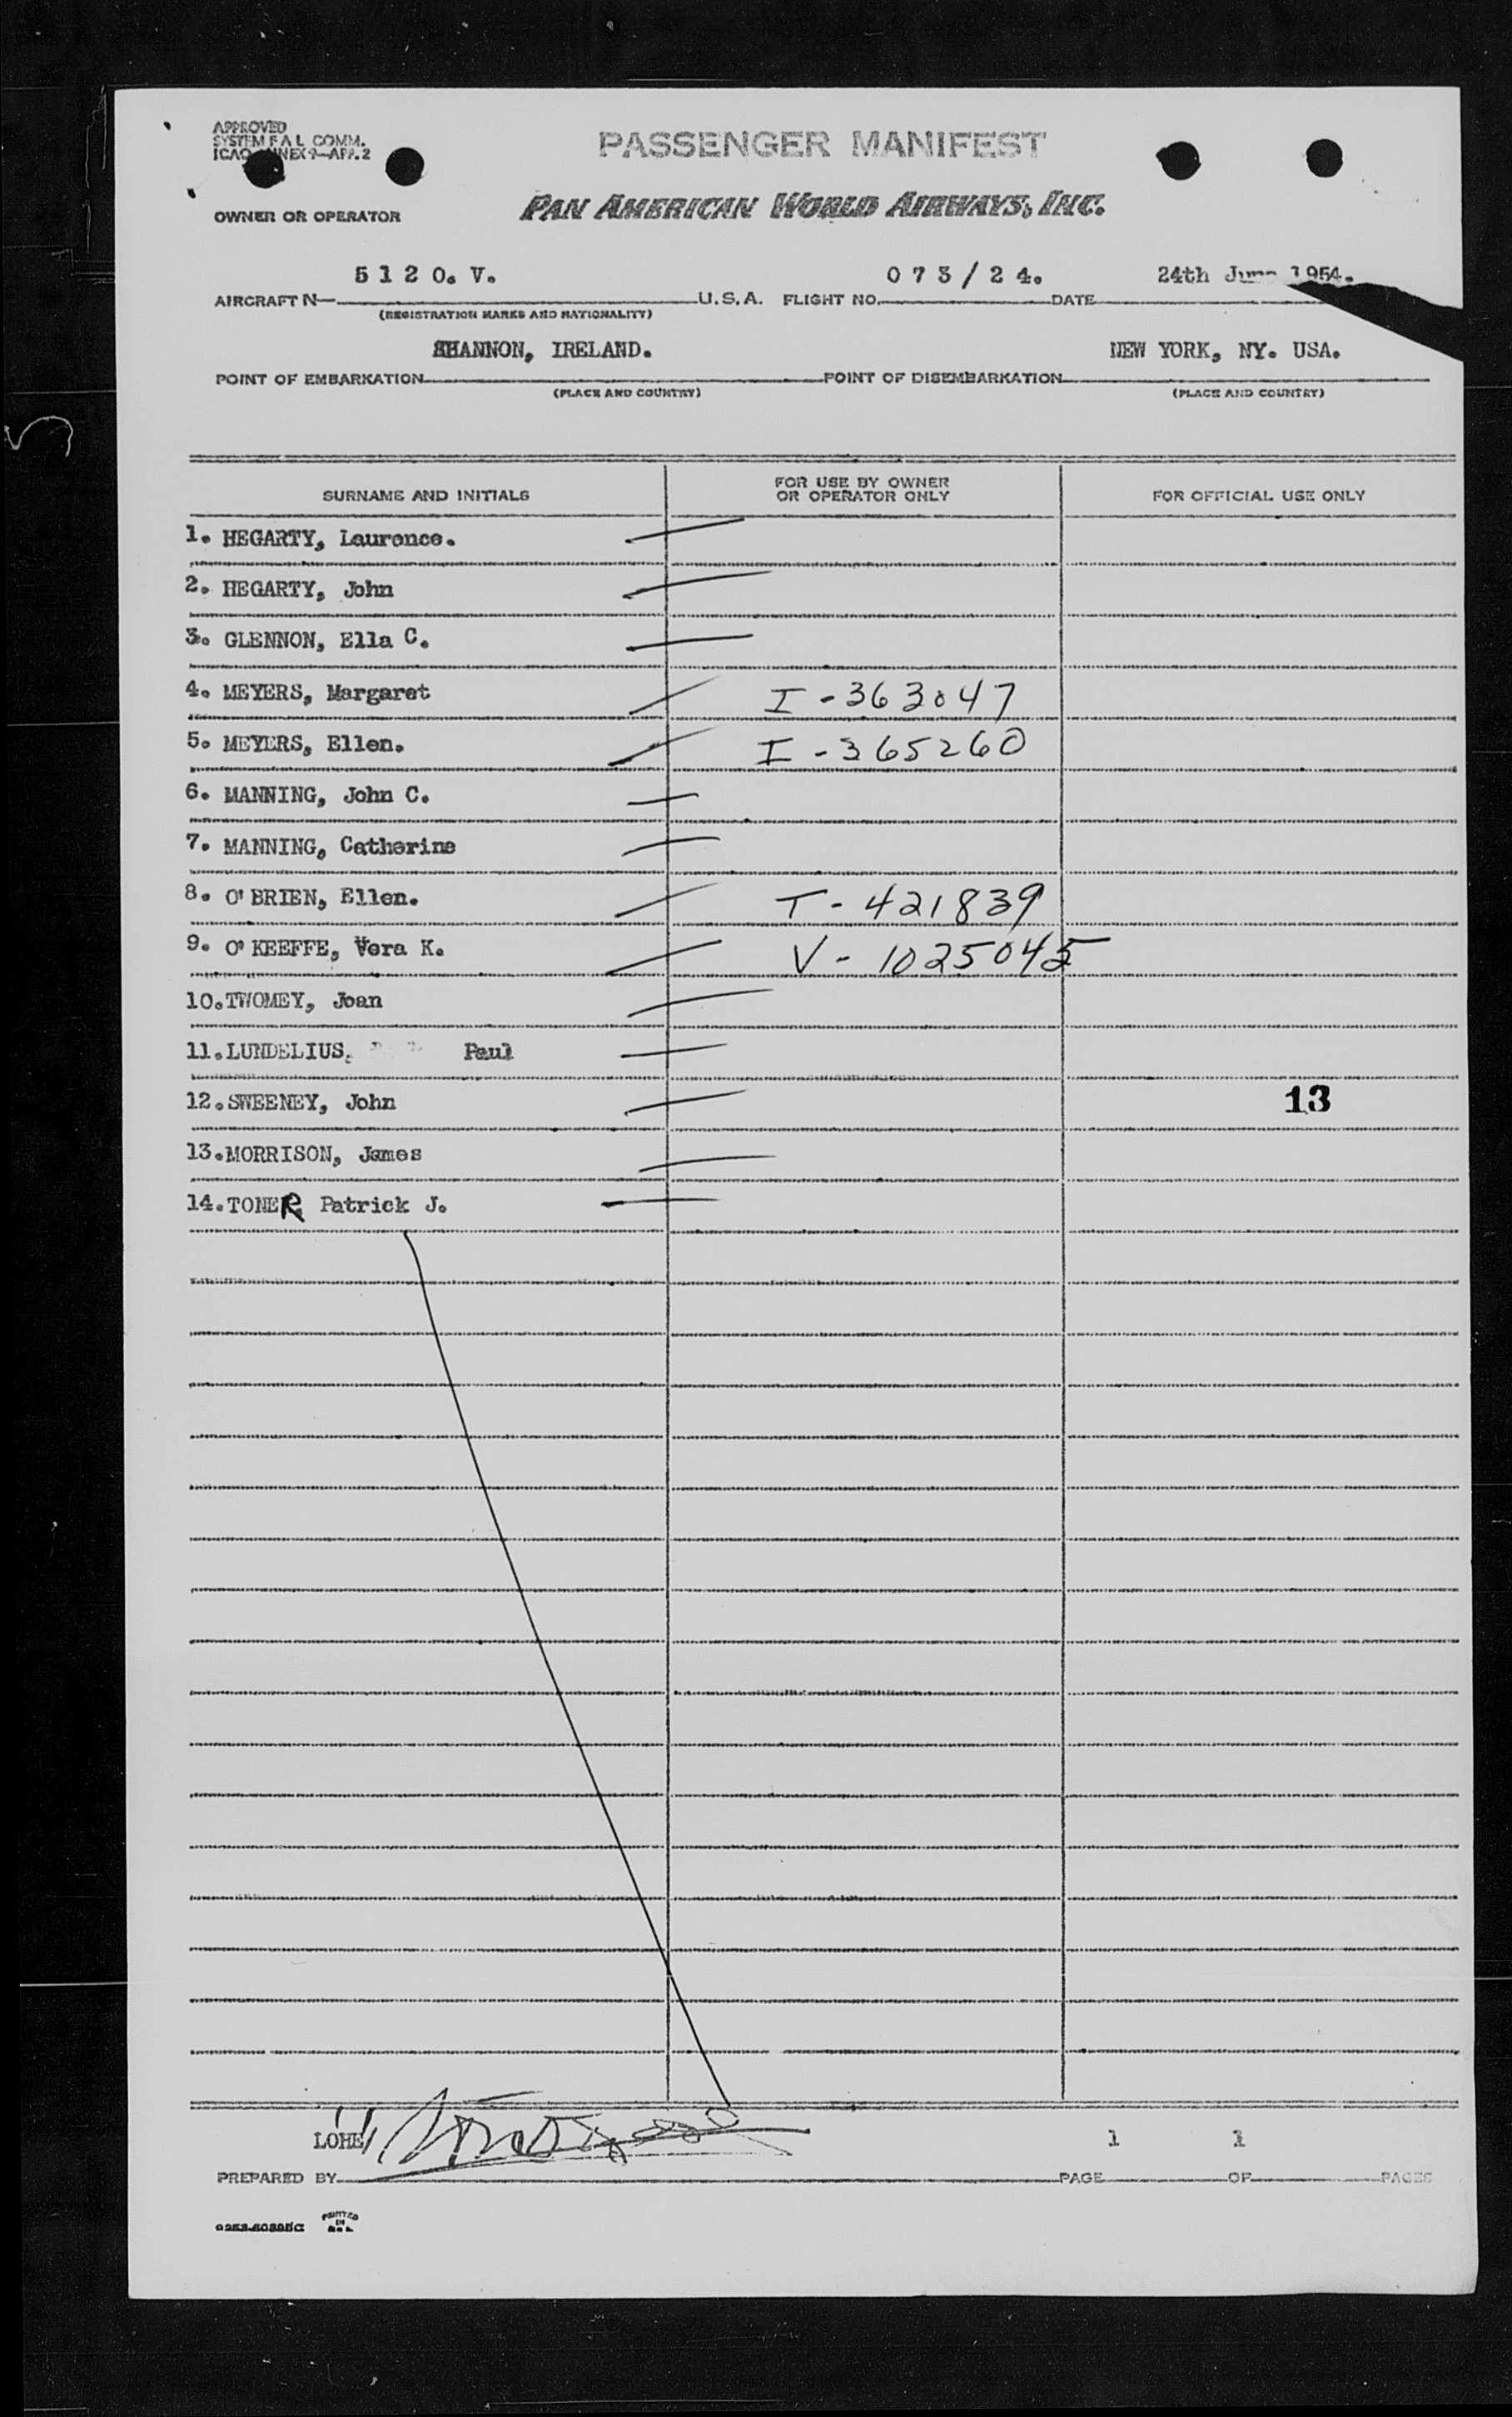 APPROVED
SYSTEM F A L COMM.
PASSENGER MANIFEST
OWNER OR OPERATOR
PAN AMERICAN WORLD AIRWAYS, INC.
5 1 2 0. V.
0 7 3 / 2 4.
24th June 1954.
AIRCRAFT N— U.S.A. FLIGHT NO. DATE
(REGISTRATION MARKS AND NATIONALITY)
SHANNON, IRELAND.
NEW YORK, NY. USA.
POINT OF EMBARKATION POINT OF DISEMBARKATION
(PLACE AND COUNTRY) (PLACE AND COUNTRY)
SURNAME AND INITIALS
FOR USE BY OWNER
OR OPERATOR ONLY
FOR OFFICIAL USE ONLY
1. HEGARTY, Laurence.
2. HEGARTY, John
3. GLENNON, Ella C.
4. MEYERS, Margaret I - 363047
5. MEYERS, Ellen. I - 365260
6. MANNING, John C.
7. MANNING, Catherine
8. O'BRIEN, Ellen. T - 421839
9. O'KEEFFE, Vera K. V - 1025045
10. TWOMEY, Joan
11. LUNDELIUS, Paul
12. SWEENEY, John 13
13. MORRISON, James
14. TONER Patrick J.
PREPARED BY PAGE 1 OF 1 PAGES
PRINTED
IN